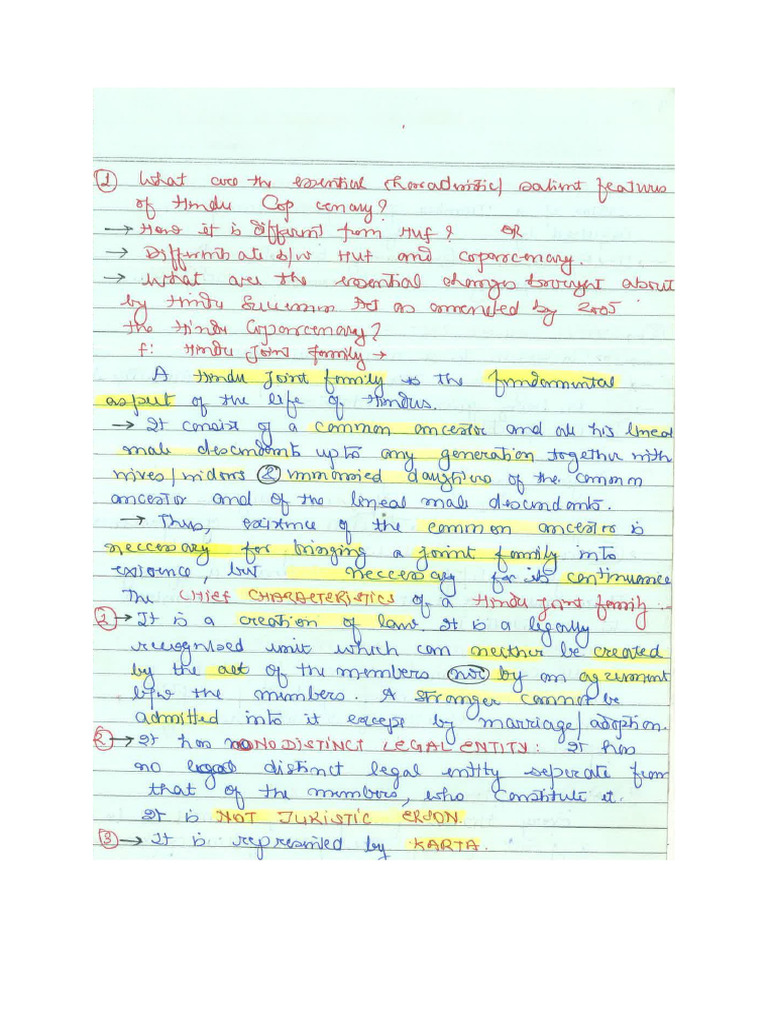 ① What are the essential characteristic/ salient features
of Hindu Cop cenary?
→ How it is different from HUF? OR
→ Differntiate b/w HUF and coparcenary.
→ What are the essential changes brought about
by Hindu Succession Act as amended by 2005
the Hindu Coparcenary?
f: Hindu Joint Family →
A Hindu Joint family is the fundamental
aspect of the life of Hindus.
→ It consist of a common ancestor and all his lineal
male descendants upto any generation together with
wives/widows & unmarried daughters of the common
ancestor and of the lineal male descendants.
→ Thus, existence of the common ancestor is
neccessary for bringing a joint family into
existence, but neccessary for its continuance
The CHIEF CHARACTERISTICS of a Hindu Joint family :-
→ It is a creation of law. It is a legally
recognised unit which can neither be created
by the act of the members nor by an agreement
b/w the members. A stranger cannot be
admitted into it except by marriage/adoption.
② → It has NO DISTINCT LEGAL ENTITY: It has
no legal distinct legal entity seperate from
that of the members, who constitute it.
It is NOT JURISTIC ERSON.
③ → It is represented by KARTA.